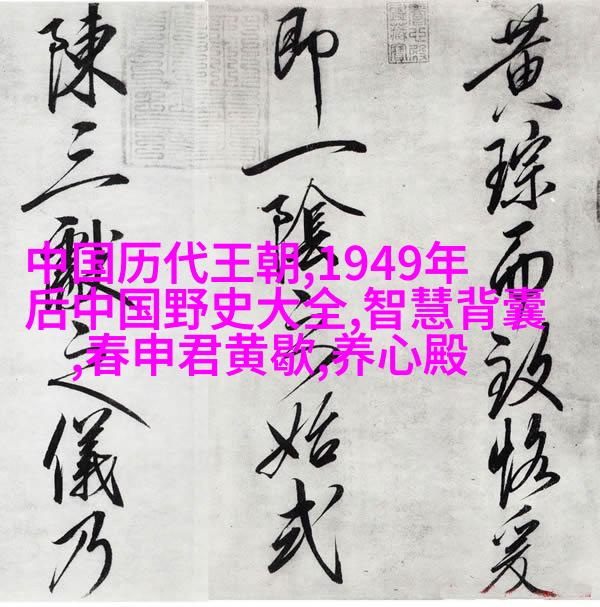 黄琮而致恪爰
即一陰之始式
陳三獻之儀乃
中国历代王朝,1949年
后中国野史大全,智慧背囊
,春申君黄歇,养心殿